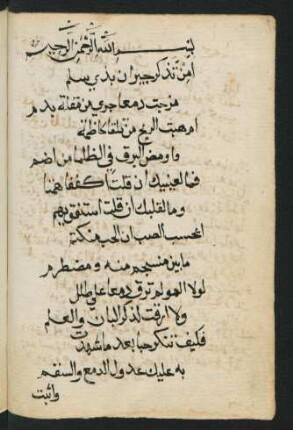 بسم الله الرحمن الرحيم
امن تذكر جيران بذي سلم
مزجت دمعا جري من مقلة بدم
ام هبت الريح من تلقا كاظمة
واومض البرق في الظلما من اضم
فما لعينيك ان قلت اكففا همتا
وما لقلبك ان قلت استفق يهم
ايحسب الصب ان الحب منكتم
ما بين منسجم منه ومضطرم
لولا الهوي لم ترق دمعا علي طلل
ولا ارقت لذكر البان والعلم
فكيف تنكر حبا بعد ما شهدت
به عليك عدول الدمع والسقم
واثبت